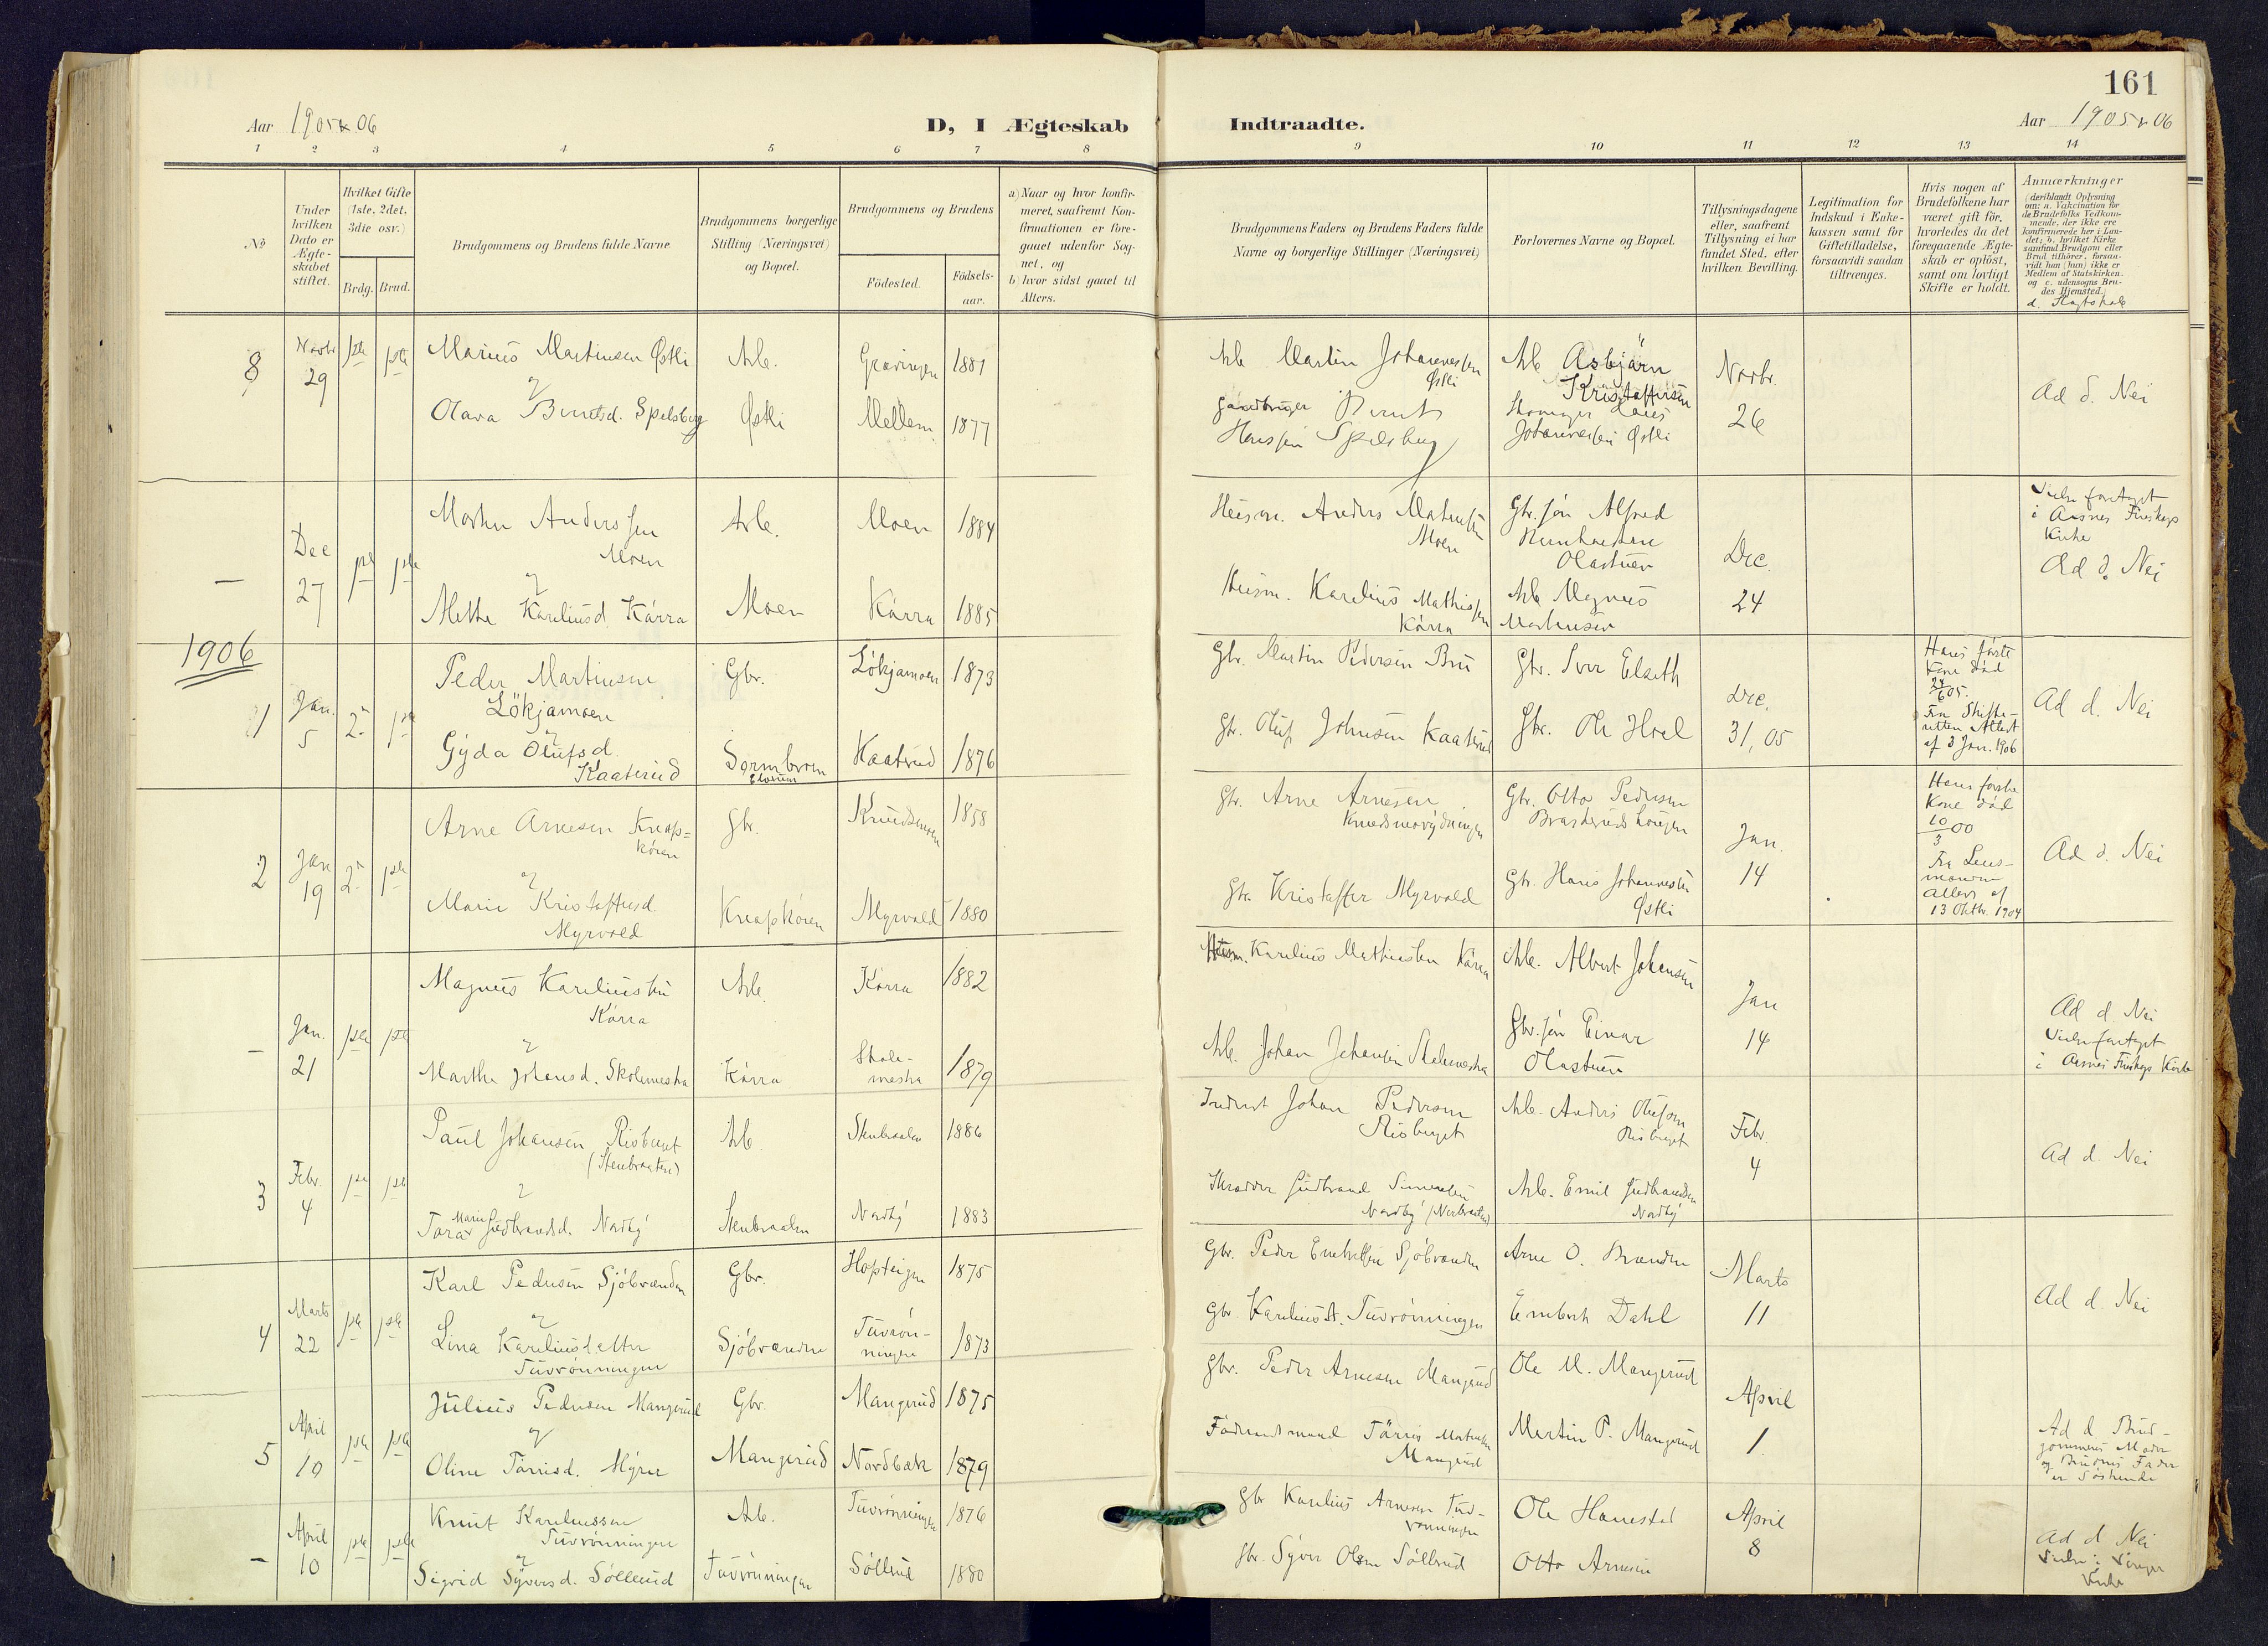 161
Aar 1905 & 06
D, I Ægteskab Indtraadte.
Aar 1905 & 06
1 2 3 4 5 6 7 8 9 10 11 12 13 14
No
Under hvilken Dato er Ægteskabet stiftet.
Hvilket Gifte (1ste, 2det, 3die osv.)
Brdg. Brud.
Brudgommens og Brudens fulde Navne
Brudgommens borgerlige Stilling (Næringsvei) og Bopæl.
Brudgommens og Brudens
Födested.
Födsels-aar.
a) Naar og hvor konfirmeret, saafremt Konfirmationen er foregaaet udenfor Sognet, og
b) hvor sidst gaaet til Alters.
Brudgommens Faders og Brudens Faders fulde Navne og borgerlige Stillinger (Næringsvei)
Forlovernes Navne og Bopæl.
Tillysningsdagene eller, saafremt Tillysning ei har fundet Sted, efter hvilken Bevilling.
Legitimation for Indskud i Enkekassen samt for Giftetilladelse, forsaavidt saadan tiltrænges.
Hvis nogen af Brudefolkene har været gift för, hvorledes da det foregaaende Ægteskab er oplöst, samt om lovligt Skifte er holdt.
Anmærkninger
(deriblandt Oplysning om: a. Vakcination for de Brudefolks Vedkommende, der ikke ere konfirmerede her i Landet; b. hvilket Kirkesamfund Brudgom eller Brud tilhörer, forsaavidt han (hun) ikke er Medlem af Statskirken. og c. udensogns Brudes Hjemsted.)
8 Novbr 29 1ste 1ste
Marius Martinsen Østli
Arb. 1881
Olava Berntsd. Spelsberg
Østli Mellem 1877
Arb Martin Johannessen Østli
Gaardbruger Bernt Hanssen Spelsberg
Arb Asbjørn Kristoffersen
Johannessen Østli
Novbr. 26
Ad d. Nei
— Dec 27 1ste 1ste
Morten Anderssen Moen
Arb. Moen 1884
Mette Kareliusd. Kårra
Moen Kårra 1885
Husm. Anders Moen
Husm. Karelius Mathissen Kårra
Gbr. søn Alfred Olastuen
Arb Magnus
Dec. 24
i Aasnes Finskogs Kirke
Ad d. Nei
1906
1 Jan. 5 2n 1ste
Peder Martinsen Lökjamoen
Gbr. Lökjamoen 1873
Gyda Olufsd. Kaaterud
Kaaterud 1876
Gbr. Martin Pedersen Bru
Gbr. Oluf Johnsen Kaaterud
Gbr. Iver Elseth
Gbr. Ole Hoel
Dec. 31, 05
Hans første Kone død 24/6 05.
Fra Skifteretten Attest af 3 Jan. 1906
Ad d. Nei
2 Jan 19 2n 1ste
Arne Arnesen Knapkøien
Gbr. 1858
Marie Kristoffersd. Myrvold
Knapkøien Myrvold 1880
Gbr. Arne Arnesen
Gbr. Kristoffer Myrvold
Gbr. Otto Pedersen
Gbr. Hans Johannessen Østli
Jan. 14
Hans første Kone død 10/3 00
Fra Lensmanden Attest af 13 Oktbr. 1904
Ad d. Nei
— Jan. 21 1ste 1ste
Magnus Kareliussen Kårra
Arb. Kårra 1882
Marthe Johansd. Skolemestra
Kårra Skolemestra 1879
Husm. Karelius Mathiassen Kårra
Arb. Johan Johansen Skolemestra
Arb. Albert Johansen
Gbr. søn Einar Olastuen
Jan 14
Ad d. Nei
i Aasnes Finskogs Kirke
3 Febr. 4 1ste 1ste
Paul Johansen Risberget (Stenbraaten)
Arb Stenbraaten 1886
Tora Marie Gudbrandsd. Nordby
Stenbraaten Nordby 1883
Inderst Johan Pedersen Risberget
Skrædder Gudbrand Simensen Nordby
Arb. Anders Olufsen Risberget
Arb. Emil Gudbrandsen Nordby
Febr. 4
Ad d. Nei
4 Marts 22 1ste 1ste
Karl Pedersen Sjöbrænden
Gbr. 1875
Lina Kareliusdatter Tuvrönningen
Sjöbrænden Tuvrönningen 1873
Gbr. Peder Embretsen Sjöbrænden
Gbr. Karelius A. Tuvrönningen
Arne O. Brænden
Embret Dahl
Marts 11
Ad d. Nei
5 April 10 1ste 1ste
Julius Pedersen Mangerud
Gbr. Mangerud 1875
Oline Törrisd. Myrer
Mangerud Nordbæk 1879
Gbr. Peder Arnesen Mangerud
Föderaadsmand Törris Mangerud
Ole M. Mangerud
Martin P. Mangerud
April 1.
Ad d Brudgommens Moder og Brudens Fader er Söskende
— April 10 1ste 1ste
Knut Kareliussen Tuvrönningen
Arb. Tuvrönningen 1876
Sigrid Syversd. Söllerud
Tuvrönningen Söllerud 1880
Gbr Karelius Arnesen Tuvrönningen
Gbr. Syver Olsen Söllerud
Ole Hanestad
Otto Arnesen
April 8
Ad d Nei
Vinger Kirke